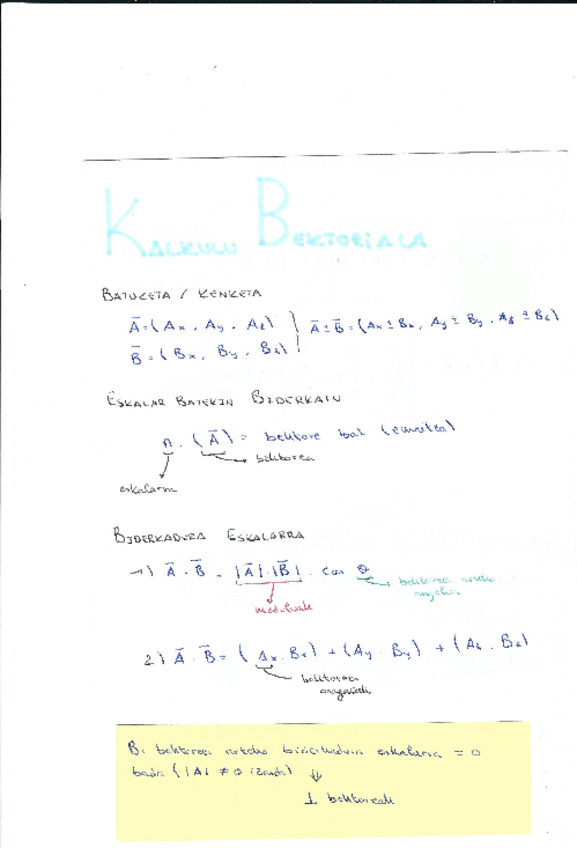 KALKULU BEKTORIALA
BATUKETA / KENKETA
Ā = (Ax, Ay, Az)
B̄ = (Bx, By, Bz)
Ā ± B̄ = (Ax ± Bx, Ay ± By, Az ± Bz)
ESKALAR BATEKIN BIDERKATU
A · (Ā) = bektore bat (emaitza)
bektorea
eskalarra
BIDERKADURA ESKALARRA
1) Ā · B̄ = |Ā| · |B̄| · cos θ
bektoreen arteko
angelua
moduluak
2) Ā · B̄ = (Ax · Bx) + (Ay · By) + (Az · Bz)
bektoreen
osagaiak
Bi bektoreen arteko biderkadura eskalarra = 0
bada (|A| ≠ 0 izanda) ⇓
⊥ bektoreak